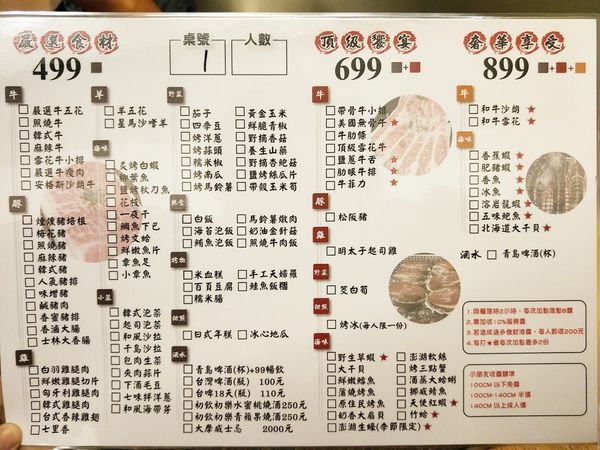 嚴選食材
499
桌號 1
人數
頂級饗宴
699
奢華享受
899
牛
嚴選牛五花
照燒牛
韓式牛
麻辣牛
雪花牛小排
嚴選牛瘦肉
安格斯沙朗牛
豚
煌煌豬培根
梅花豬
照燒豬
麻辣豬
韓式豬
人氣豬排
味增豬
鹹豬肉
香蜜豬排
香滷大腸
士林大香腸
雞
白羽雞腿肉
鮮嫩雞腿切片
匈牙利雞腿肉
韓式雞腿肉
台式香辣雞翅
七里香
羊
羊五花
星馬沙嗲羊
海味
炙烤白蝦
柳葉魚
鹽烤秋刀魚
花枝
一夜干
鯛魚下巴
烤文蛤
鮮嫩魚片
章魚足
小章魚
小菜
韓式泡菜
起司泡菜
和風沙拉
千島沙拉
包肉生菜
夾肉蒜片
下酒毛豆
七味拌洋蔥
和風海帶芽
野菜
茄子
四季豆
烤洋蔥
烤蒜頭
糯米椒
烤南瓜
烤馬鈴薯
黃金玉米
鮮脆青椒
野摘香菇
養生山藥
野摘杏鮑菇
鹽烤絲瓜片
帶殼玉米筍
熱食
白飯
海苔泡飯
鮪魚泡飯
馬鈴薯燉肉
奶油金針菇
照燒牛肉飯
烤物
米血糕
百頁豆腐
糯米腸
手工天婦羅
鮭魚飯糰
甜點
日式年糕
冰心地瓜
酒水
青島啤酒(杯)+99暢飲
台灣啤酒(瓶) 100元
台啤18天(瓶) 110元
初飲初樂水蜜桃燒酒250元
初飲初樂青蘋果燒酒250元
大摩威士忌 2000元
牛
帶骨牛小排
美國無骨牛★
牛肋條
頂級雪花牛
鹽蔥牛舌★
肋眼牛排★
牛菲力★
豚
松阪豬
雞
明太子起司雞
野菜
茭白筍
甜點
烤冰(每人限一份)
海味
野生草蝦★
大干貝
鮮嫩鱈魚
蒲燒烤魚
原住民烤魚
奶香大扇貝
澎湖生蠔(季節限定)★
澎湖軟絲
烤三點蟹
酒蒸大蛤蜊
挪威鯖魚
天使紅蝦★
竹蛤★
牛
和牛沙朗★
和牛雪花★
海味
香蕉蝦★
肥豬蝦★
香魚★
冰魚★
溶岩龍蝦★
五味鮑魚★
北海道大干貝★
酒水 青島啤酒(杯)
1.用餐限時2小時，每次加點限點8樣
2.需加收10%服務費
3.若造成過多食材浪費，每人酌收200元
4.有打★者每次加點最多2份
小朋友收費標準
100CM 以下免費
100CM-140CM 半價
140CM 以上成人價